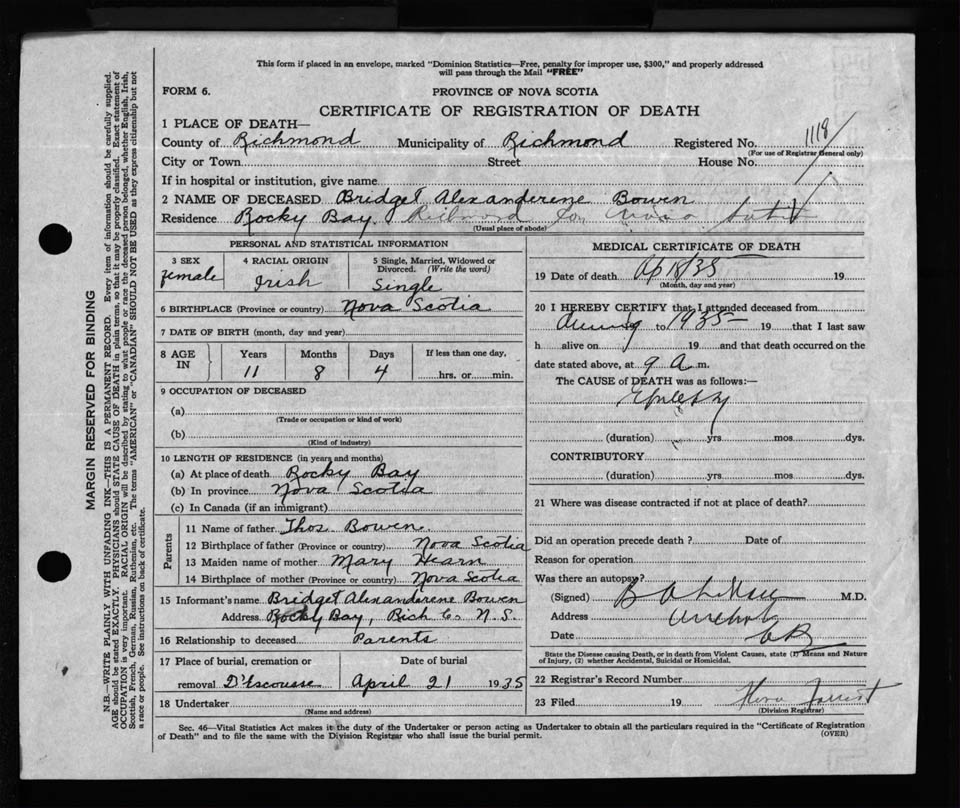 This form if placed in an envelope, marked "Dominion Statistics—Free, penalty for improper use, $300," and properly addressed
will pass through the Mail "FREE"
FORM 6. PROVINCE OF NOVA SCOTIA
CERTIFICATE OF REGISTRATION OF DEATH
1 PLACE OF DEATH—
County of Richmond Municipality of Richmond Registered No. 1118
(For use of Registrar General only)
City or Town Street House No.
If in hospital or institution, give name
2 NAME OF DECEASED Bridget Alexanderene Bowen
Residence Rocky Bay, Richmond Co Nova Scotia
(Usual place of abode)
PERSONAL AND STATISTICAL INFORMATION
3 SEX
female
4 RACIAL ORIGIN
Irish
5 Single, Married, Widowed or
Divorced. (Write the word)
Single
6 BIRTHPLACE (Province or country) Nova Scotia
7 DATE OF BIRTH (month, day and year)
8 AGE IN Years Months Days If less than one day,
11 8 4 hrs. or min.
9 OCCUPATION OF DECEASED
(a)
(Trade or occupation or kind of work)
(b)
(Kind of industry)
10 LENGTH OF RESIDENCE (in years and months)
(a) At place of death Rocky Bay
(b) In province Nova Scotia
(c) In Canada (if an immigrant)
Parents
11 Name of father Thos Bowen
12 Birthplace of father (Province or country) Nova Scotia
13 Maiden name of mother Mary Hearn
14 Birthplace of mother (Province or country) Nova Scotia
15 Informant's name Bridget Alexanderene Bowen
Address Rocky Bay, Rich Co. N.S.
16 Relationship to deceased Parents
17 Place of burial, cremation or Date of burial
removal D'Escousse April 21 1935
18 Undertaker
(Name and address)
MEDICAL CERTIFICATE OF DEATH
19 Date of death Ap 18/35 19
(Month, day and year)
20 I HEREBY CERTIFY that I attended deceased from
to 1935 19 that I last saw
h alive on 19 and that death occurred on the
date stated above, at 9 A m.
The CAUSE of DEATH was as follows:—
Epilepsy
(duration) yrs mos dys.
CONTRIBUTORY
(duration) yrs mos dys.
21 Where was disease contracted if not at place of death?
Did an operation precede death? Date of
Reason for operation
Was there an autopsy?
(Signed) M.D.
Address
Date
State the Disease causing Death, or in death from Violent Causes, state (1) Means and Nature
of Injury, (2) whether Accidental, Suicidal or Homicidal.
22 Registrar's Record Number
23 Filed 19 Flora
(Division Registrar)
Sec. 46—Vital Statistics Act makes it the duty of the Undertaker or person acting as Undertaker to obtain all the particulars required in the "Certificate of Registration
of Death" and to file the same with the Division Registrar who shall issue the burial permit. (OVER)
MARGIN RESERVED FOR BINDING
N.B.—WRITE PLAINLY WITH UNFADING INK—THIS IS A PERMANENT RECORD. Every item of information should be carefully supplied.
AGE should be stated EXACTLY. PHYSICIANS should STATE CAUSE OF DEATH in plain terms, so that it may be properly classified. Exact statement of
OCCUPATION is very important. RACIAL ORIGIN will be described by stating to what people or race the deceased person belonged, whether English, Irish,
Scottish, French, German, Russian, Ruthenian, etc. The terms "AMERICAN" or "CANADIAN" SHOULD NOT BE USED as they express citizenship but not
a race or people. See instructions on back of certificate.